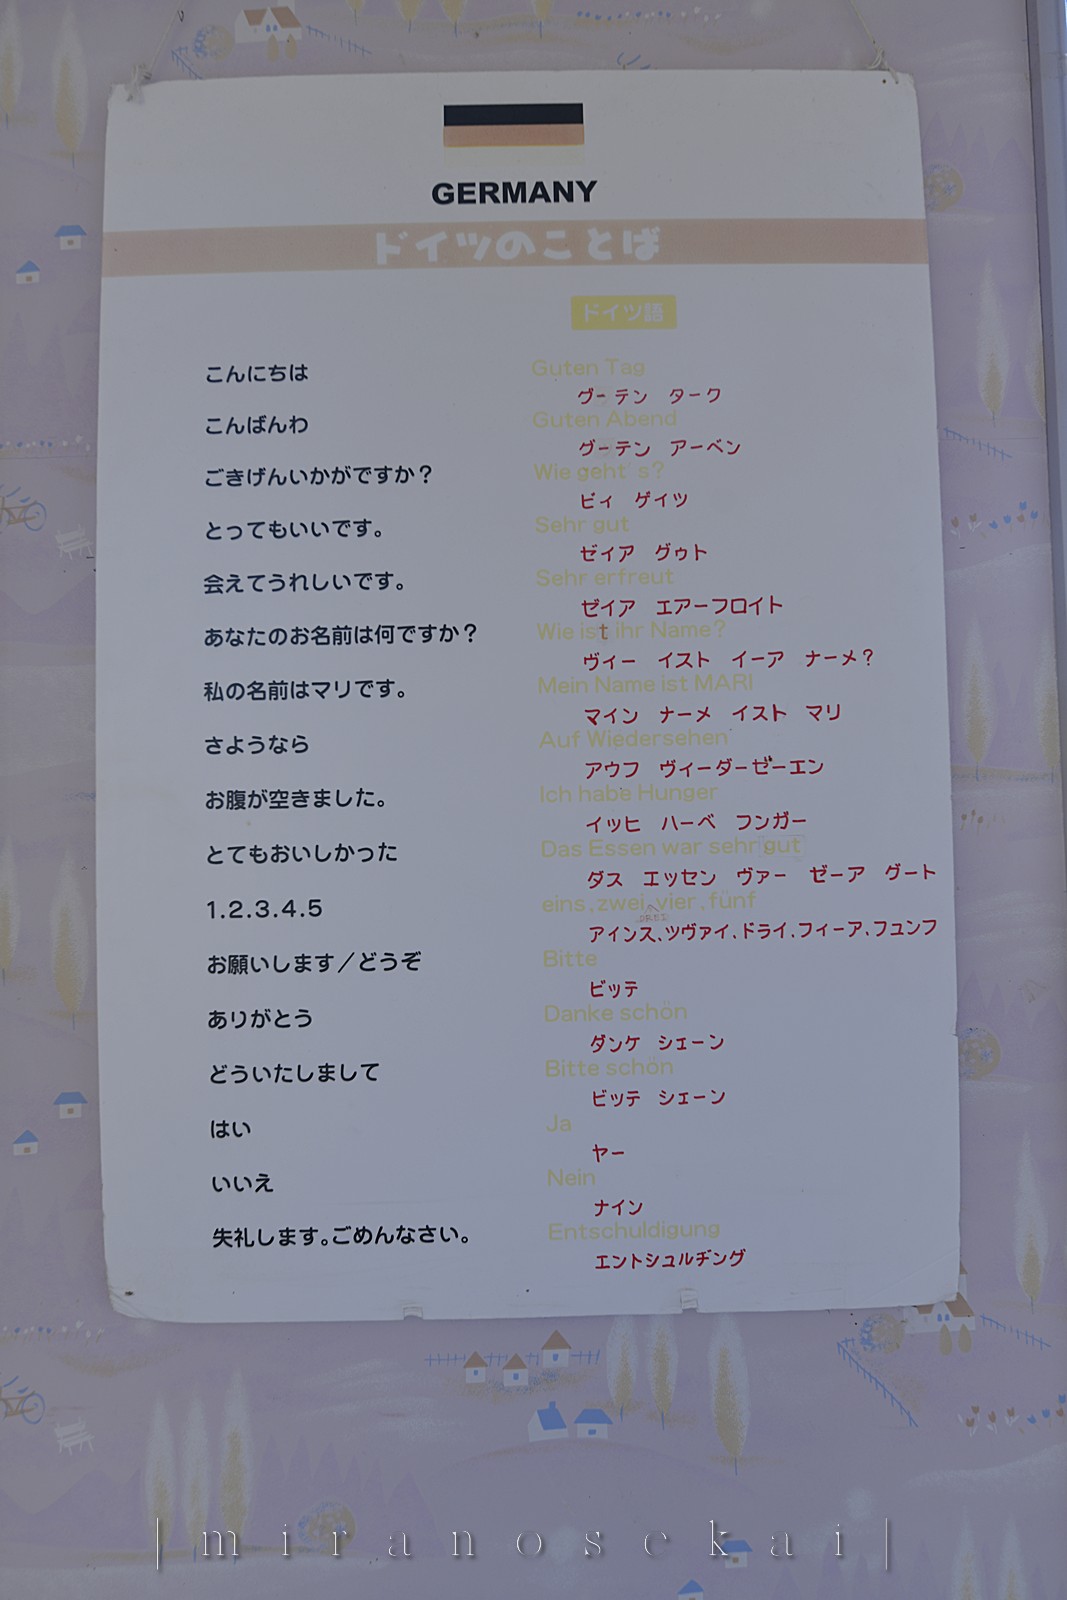 GERMANY
ドイツのことば
ドイツ語
こんにちは Guten Tag
グーテン ターク
こんばんわ Guten Abend
グーテン アーベン
ごきげんいかがですか？ Wie geht´s?
ビィ ゲイツ
とってもいいです。 Sehr gut
ゼイア グゥト
会えてうれしいです。 Sehr erfreut
ゼイア エアーフロイト
あなたのお名前は何ですか？ Wie ist ihr Name?
ヴィー イスト イーア ナーメ？
私の名前はマリです。 Mein Name ist MARI
マイン ナーメ イスト マリ
さようなら Auf Wiedersehen
アウフ ヴィーダーゼーエン
お腹が空きました。 Ich habe Hunger
イッヒ ハーベ フンガー
とてもおいしかった Das Essen war sehr gut
ダス エッセン ヴァー ゼーア グート
1.2.3.4.5 eins,zwei,vier,fünf
DREI
アインス、ツヴァイ、ドライ、フィーア、フュンフ
お願いします／どうぞ Bitte
ビッテ
ありがとう Danke schön
ダンケ シェーン
どういたしまして Bitte schön
ビッテ シェーン
はい Ja
ヤー
いいえ Nein
ナイン
失礼します。ごめんなさい。 Entschuldigung
エントシュルヂング
|miranosekai|